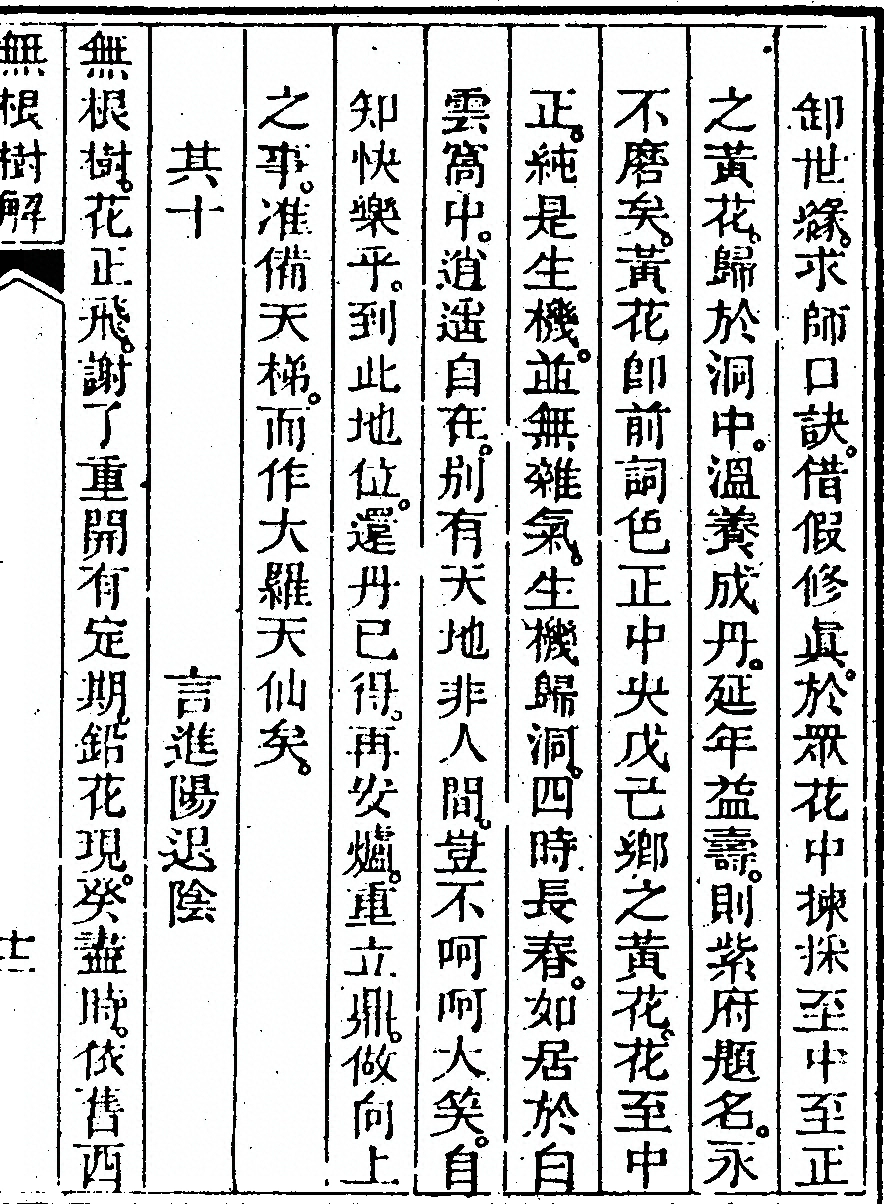 卸世緣。求師口訣。借假修眞。於眾花中揀採至中至正
之黃花。歸於洞中。溫養成丹。延年益壽。則紫府題名。永
不磨矣。黃花卽前詞色正中央戊己鄉之黃花。花至中
正。純是生機。並無雜氣。生機歸洞。四時長春。如居於自
雲窩中。逍遙自在。別有天地非人間。豈不呵呵大笑。自
知快樂乎。到此地位。還丹已得。再安爐。重立鼎。做向上
之事。准備天梯。而作大羅天仙矣。
其十 言進陽退陰
無根樹。花正飛。謝了重開有定期。鉛花現。癸盡時。依舊西
無根樹解 十二